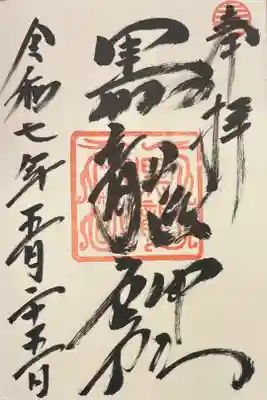 奉拝
黒龍神社
令和七年五月二十五日